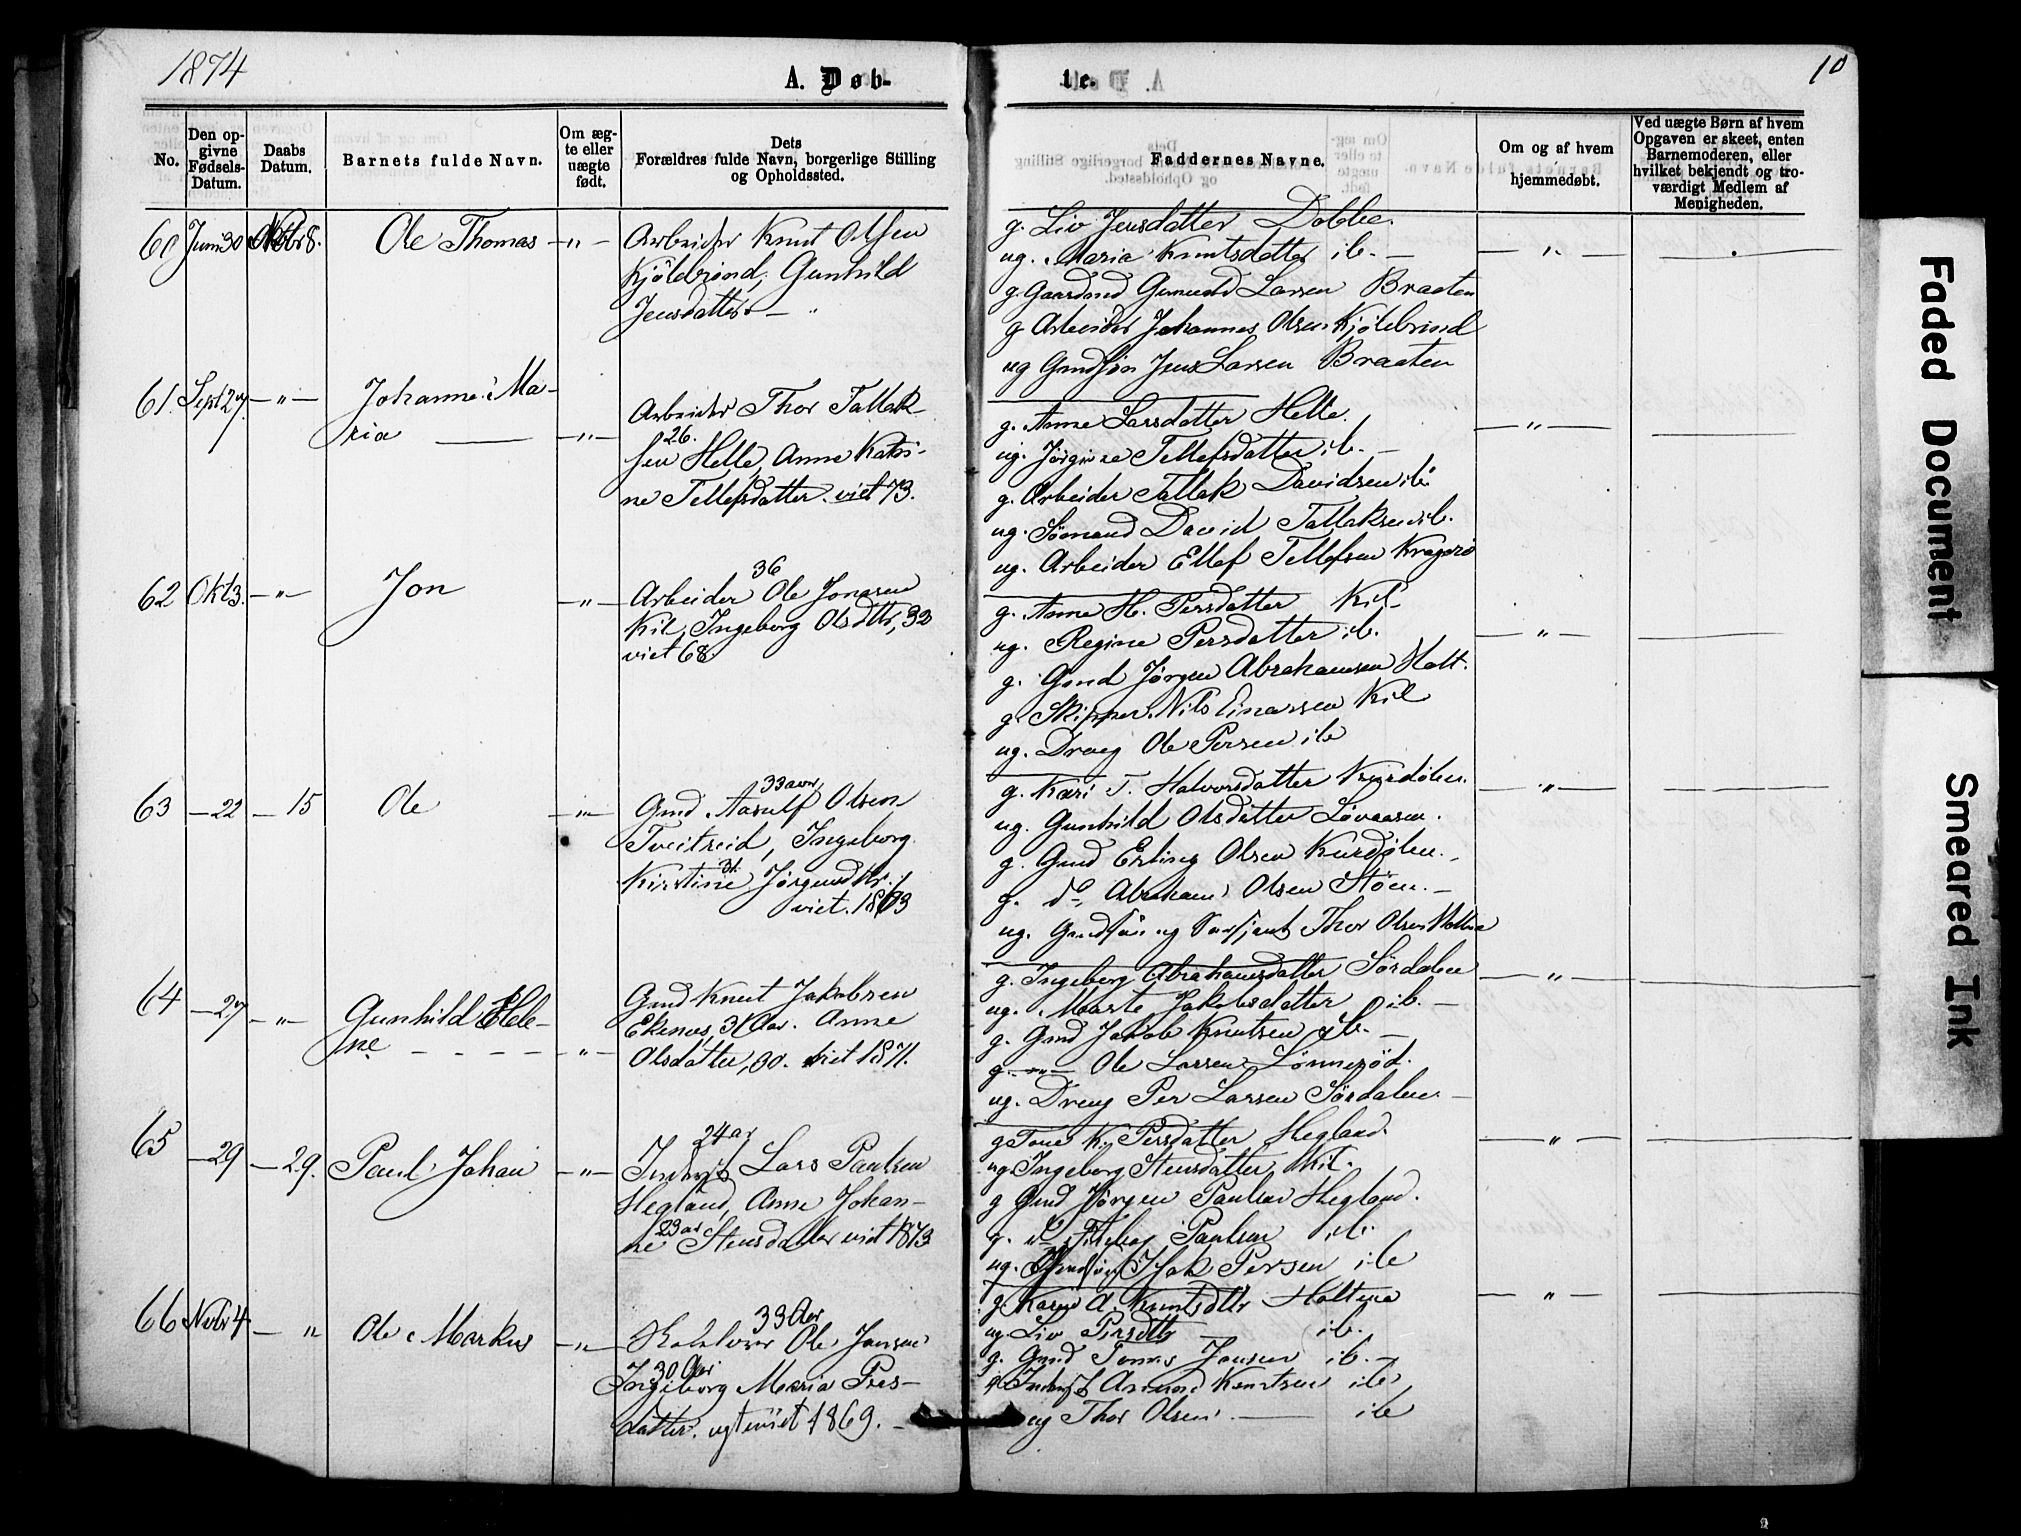 1874
A. Døb-
te.
10
No.
Den op-
givne
Fødsels-
Datum.
Daabs
Datum.
Barnets fulde Navn.
Om æg-
te eller
uægte
født.
Dets
Forældres fulde Navn, borgerlige Stilling
og Opholdssted.
Faddernes Navne.
Om og af hvem
hjemmedøbt.
Ved uægte Børn af hvem
Opgaven er skeet, enten
Barnemoderen, eller
hvilket bekjendt og tro-
værdigt Medlem af
Menigheden.
60 Juni 30 Nobr 8. Ole Thomas — " —
Arbeider Knut Olsen
Kjölebrönd, Gunhild
Jensdatter — "
g. Liv Jensdatter Dobbe.
ug. Maria Knutsdatter ib. —
g. Gaardmd Gunuld Larsen Braaten
g Arbeider Johannes Olsen Kjölebrönd
ug Gmdsön Jens Larsen Braaten
61. Sept 27. — " — Johanne Ma-
ria — " —
Arbeider Thor Tallak-
26.
sen Helle, Anne Kathi-
ne Tellefsdatter. viet 73.
g. Anne Larsdatter Helle.
ug. Jørgine Tellefsdatter ib. —
g. Arbeider Tallak Davidsen ib.
ug. Sömand David Tallaksen ib.
ug. Arbeider Ellef Tellefsen Kragerö
62 Okt 3. — " — Jon — " —
36
Arbeider Ole Jonasen
Kil, Ingeborg Olsdtr, 32
viet 68.
g. Anne H. Persdatter Kil
ug. Regine Persdatter ib.
g. Gmd Jörgen Abrahamsen Holt.
g. Skipper Nils Einarsen Kil
ug. Dreng Ole Persen ib
63 — 22 — 15 Ole — " —
33 aar
Gmd. Aasulf Olsen
Tveitreid, Ingeborg
31.
Kirstine Jørgensdtr.
viet. 1863
g. Kari T. Halvorsdatter Kurdölen.
ug. Gunhild Olsdatter Lövaasen.
g. Gmd Erling Olsen Kurdölen.
g. do Abraham Olsen Stöen. —
ug. Gmdsön og Sersjant Thor Olsen Holtene
64 — 27 — " — Gunhild Hele-
ne — " —
Gmd Knut Jakobsen
Ekenes, 31 Aar. Anne
Olsdatter, 30. viet 1871.
g. Ingeborg Abrahamsdatter Sördalen
ug. Marte Jakobsdatter ib. —
g. Gmd Jakob Knutsen ib. —
g. — " — Ole Larsen Lönneröd.
ug. Dreng Per Larsen Sördalen. —
65 — 29 — 29. Paul Johan — " —
24 ar
Inderst Lars Paulsen
Hegland, Anne Johan-
23 ar
ne Stensdatter viet 1873
g Tone K. Persdatter Hegland.
ug. Ingeborg Stensdatter Kil.
g Gmd Jörgen Paulsen Hegland.
g. do Paulsen ib.
ug. Gmdsön Isak Persen ib
66 Nobr 4. — " Ole Markus — " —
33 Aar
Skolelærer Ole Jansen
30 Aar
Ingeborg Maria Pers-
datter. viet 1869. —
g. Karen A. Knutsdtr Holtene
ug. Liv Persdtr ib.
g. Gmd Tomas Jansen ib. —
g Inderst Asmund Knutsen ib
ug Thor Olsen — ib
Faded Document
Smeared Ink